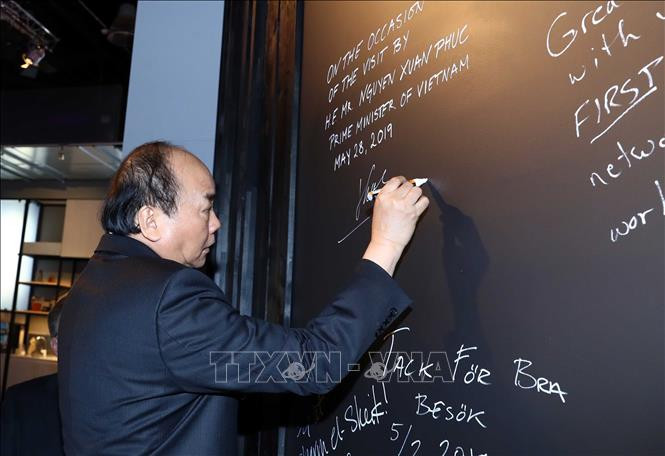 ON THE OCCASION
OF THE VISIT BY
H.E MR NGUYEN XUAN PHUC
PRIME MINISTER OF VIETNAM
MAY 28, 2019
Great
with
FIRST
network
TTXVN - VNA
TACK FÖR BRA
BESÖK
el-Sheik!
5/2